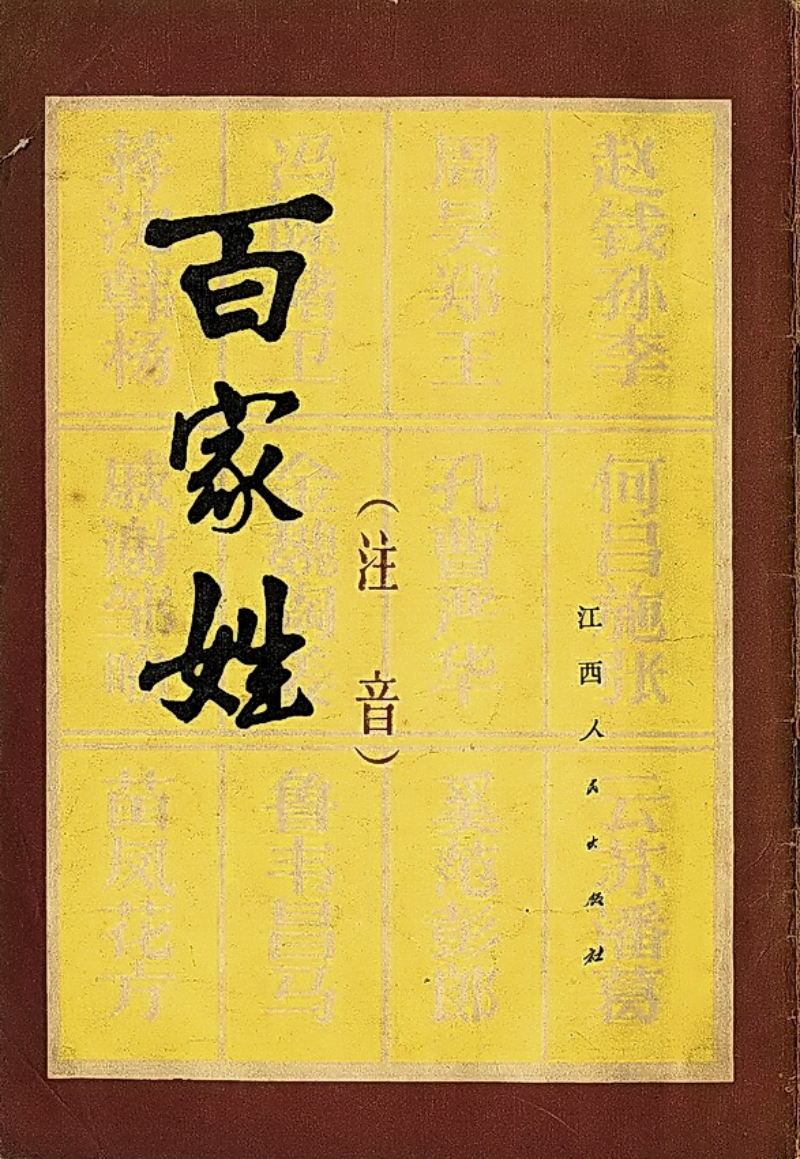 百家姓
（注音）
江西人民出版社
赵钱孙李
周吴郑王
冯陈褚卫
蒋沈韩杨
何吕施张
孔曹严华
金魏陶姜
戚谢邹喻
云苏潘葛
奚范彭郎
鲁韦昌马
苗凤花方